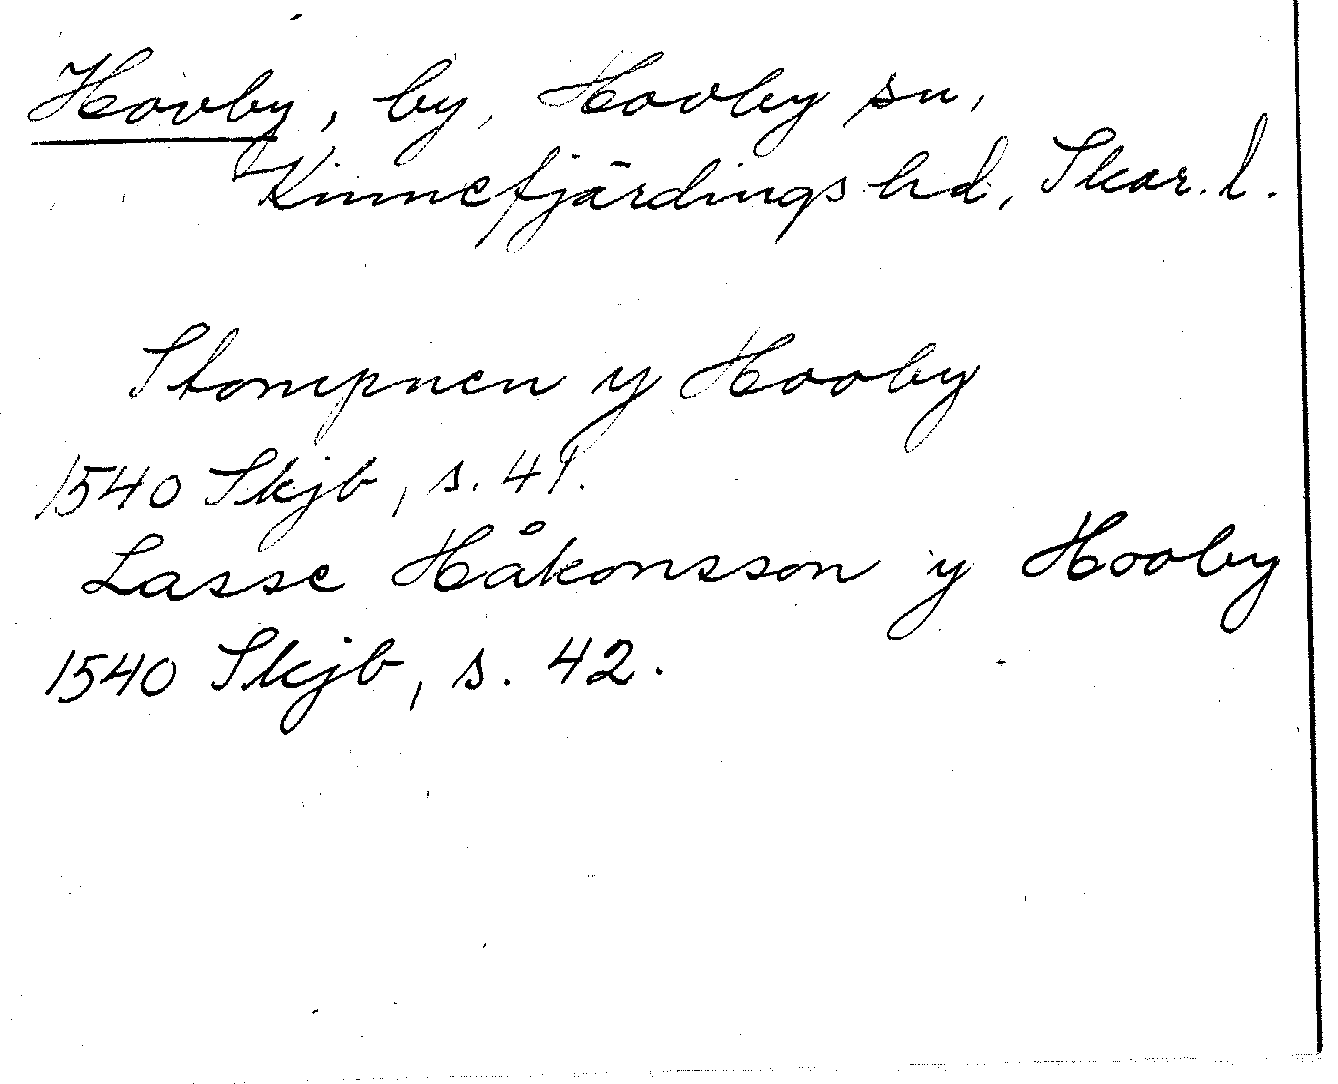 Hovby, by, Hovby sn,
Kinnefjärdings hd, Skar. l.
Stompnen y Hooby
1540 Skjb, s. 41.
Lasse Håkonsson y Hooby
1540 Skjb, s. 42.